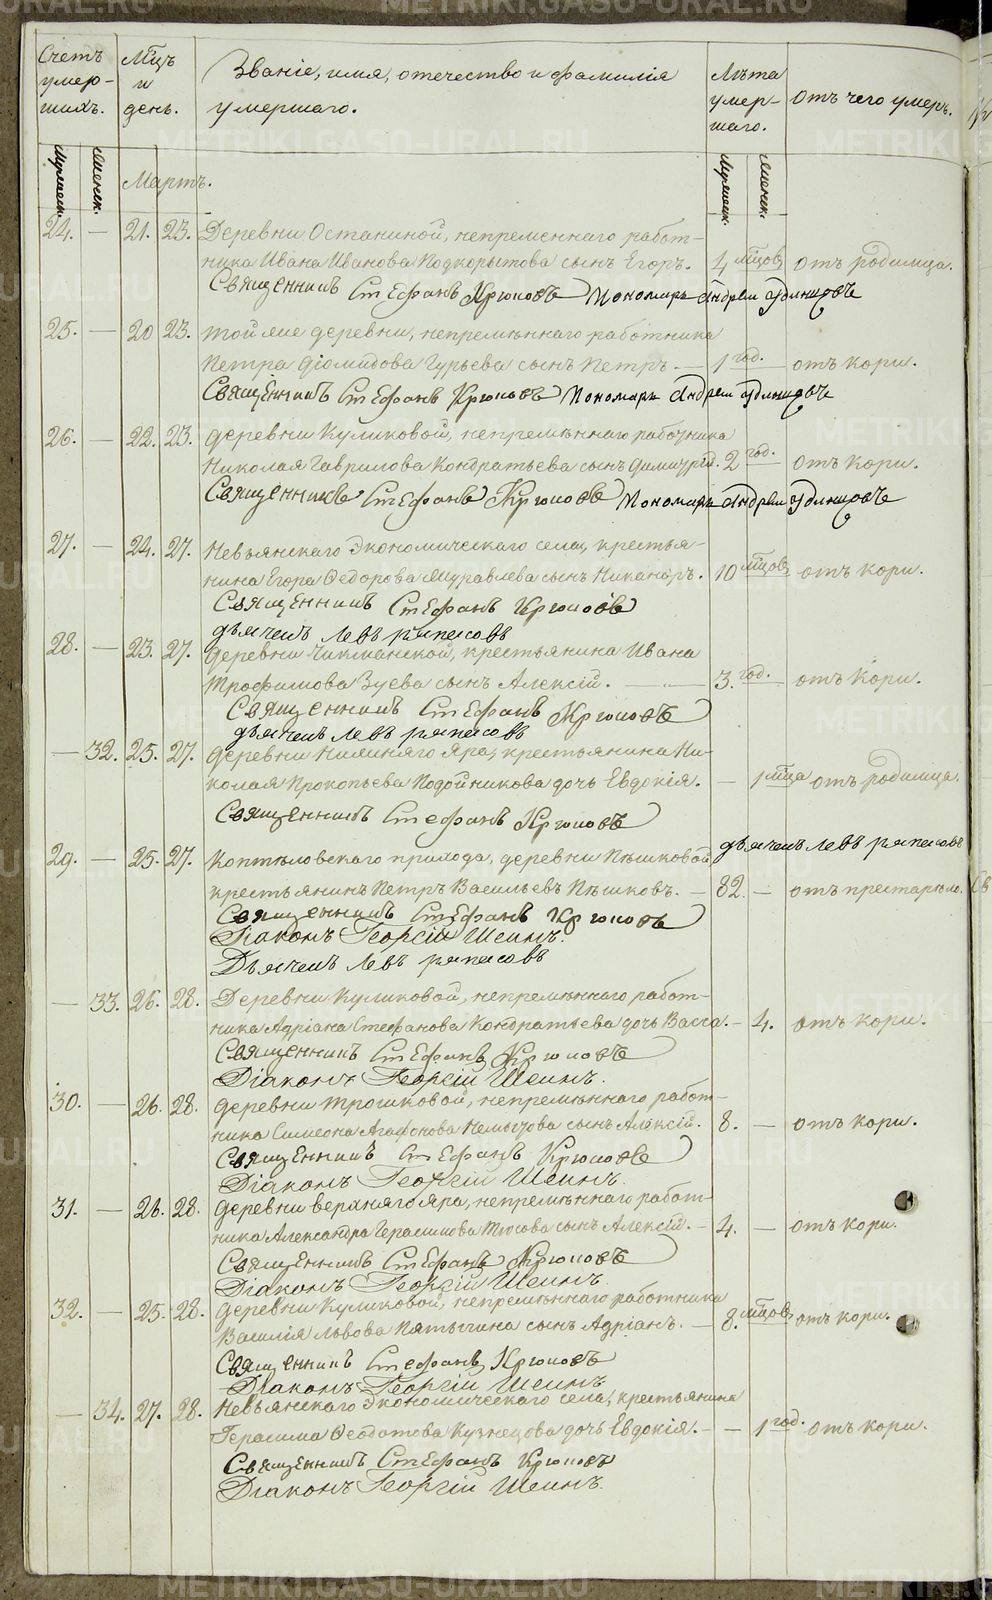 Счетъ умер-шихъ.
Мцъ и день.
Званіе, имя, отечество и фамилія умершаго.
Лѣта умер-шаго.
Отъ чего умеръ.
Мужеск. Женск.
Мужеск. Женск.
Мартъ.
24. — 21. 23. Деревни Останиной, непременнаго работ-
ника Ивана Иванова Подкорытова сынъ Егоръ. 4 мцов отъ родимца.
Священникъ Стефанъ Крюковъ Пономарь Андрей Удинцовъ
25. — 20 23. Той же деревни, непремѣннаго работника
Петра Діомидова Гурьева сынъ Петръ. — 1 год. отъ кори.
Священникъ Стефанъ Крюковъ Пономарь Андрей Удинцовъ
26. — 22. 23. Деревни Куликовой, непремѣннаго работника
Николая Гаврилова Кондратьева сынъ Димитрій. 2 год. отъ кори.
Священникъ Стефанъ Крюковъ Пономарь Андрей Удинцовъ
27. — 24. 27. Невьянскаго Экономическаго села, крестья-
нина Егора Ѳедорова Муравлева сынъ Никаноръ. 10 мцов отъ кори.
Священникъ Стефанъ Крюковъ
Дьячекъ Левъ
28. — 23. 27. Деревни Чикманской, крестьянина Ивана
Трофимова Зуева сынъ Алексій. — 3. год. отъ кори.
Священникъ Стефанъ Крюковъ
Дьячекъ Левъ
— 32. 25. 27. Деревни Нижняго Яра, крестьянина Ни-
колая Прокопьева Подойникова дочь Евдокія. — 1 мца отъ родимца.
Священникъ Стефанъ Крюковъ
Дьячекъ Левъ
29. — 25. 27. Коптѣловскаго прихода, деревни Пѣшковой
крестьянинъ Петръ Васильевъ Пѣшковъ. — 82. — отъ престарѣло.
Священникъ Стефанъ Крюковъ
Діаконъ Георгій Шеинъ.
Дьячекъ Левъ
— 33. 26. 28. Деревни Куликовой, непремѣннаго работ-
ника Адріана Стефанова Кондратьева дочь Васса. — 4. отъ кори.
Священникъ Стефанъ Крюковъ
Діаконъ Георгій Шеинъ.
30. — 26. 28. Деревни Трошковой, непремѣннаго работ-
ника Симеона Агафонова сынъ Алексій. 8. — отъ кори.
Священникъ Стефанъ Крюковъ
Діаконъ Георгій Шеинъ.
31. — 26. 28. Деревни верхняго яра, непремѣннаго работ-
ника Александра Герасимова сынъ Алексій. — 4. — отъ кори.
Священникъ Стефанъ Крюковъ
Діаконъ Георгій Шеинъ.
32. — 25. 28. Деревни Куликовой, непремѣннаго работника
Василія Львова Пятыгина сынъ Адріанъ. — 8. мцов отъ кори.
Священникъ Стефанъ Крюковъ
Діаконъ Георгій Шеинъ
— 34. 27. 28. Невьянскаго Экономическаго села, крестьянина
Герасима Ѳеодотова Кузнецова дочь Евдокія. — — 1 год. отъ кори.
Священникъ Стефанъ Крюковъ
Діаконъ Георгій Шеинъ.
METRIKI.GASO-URAL.RU